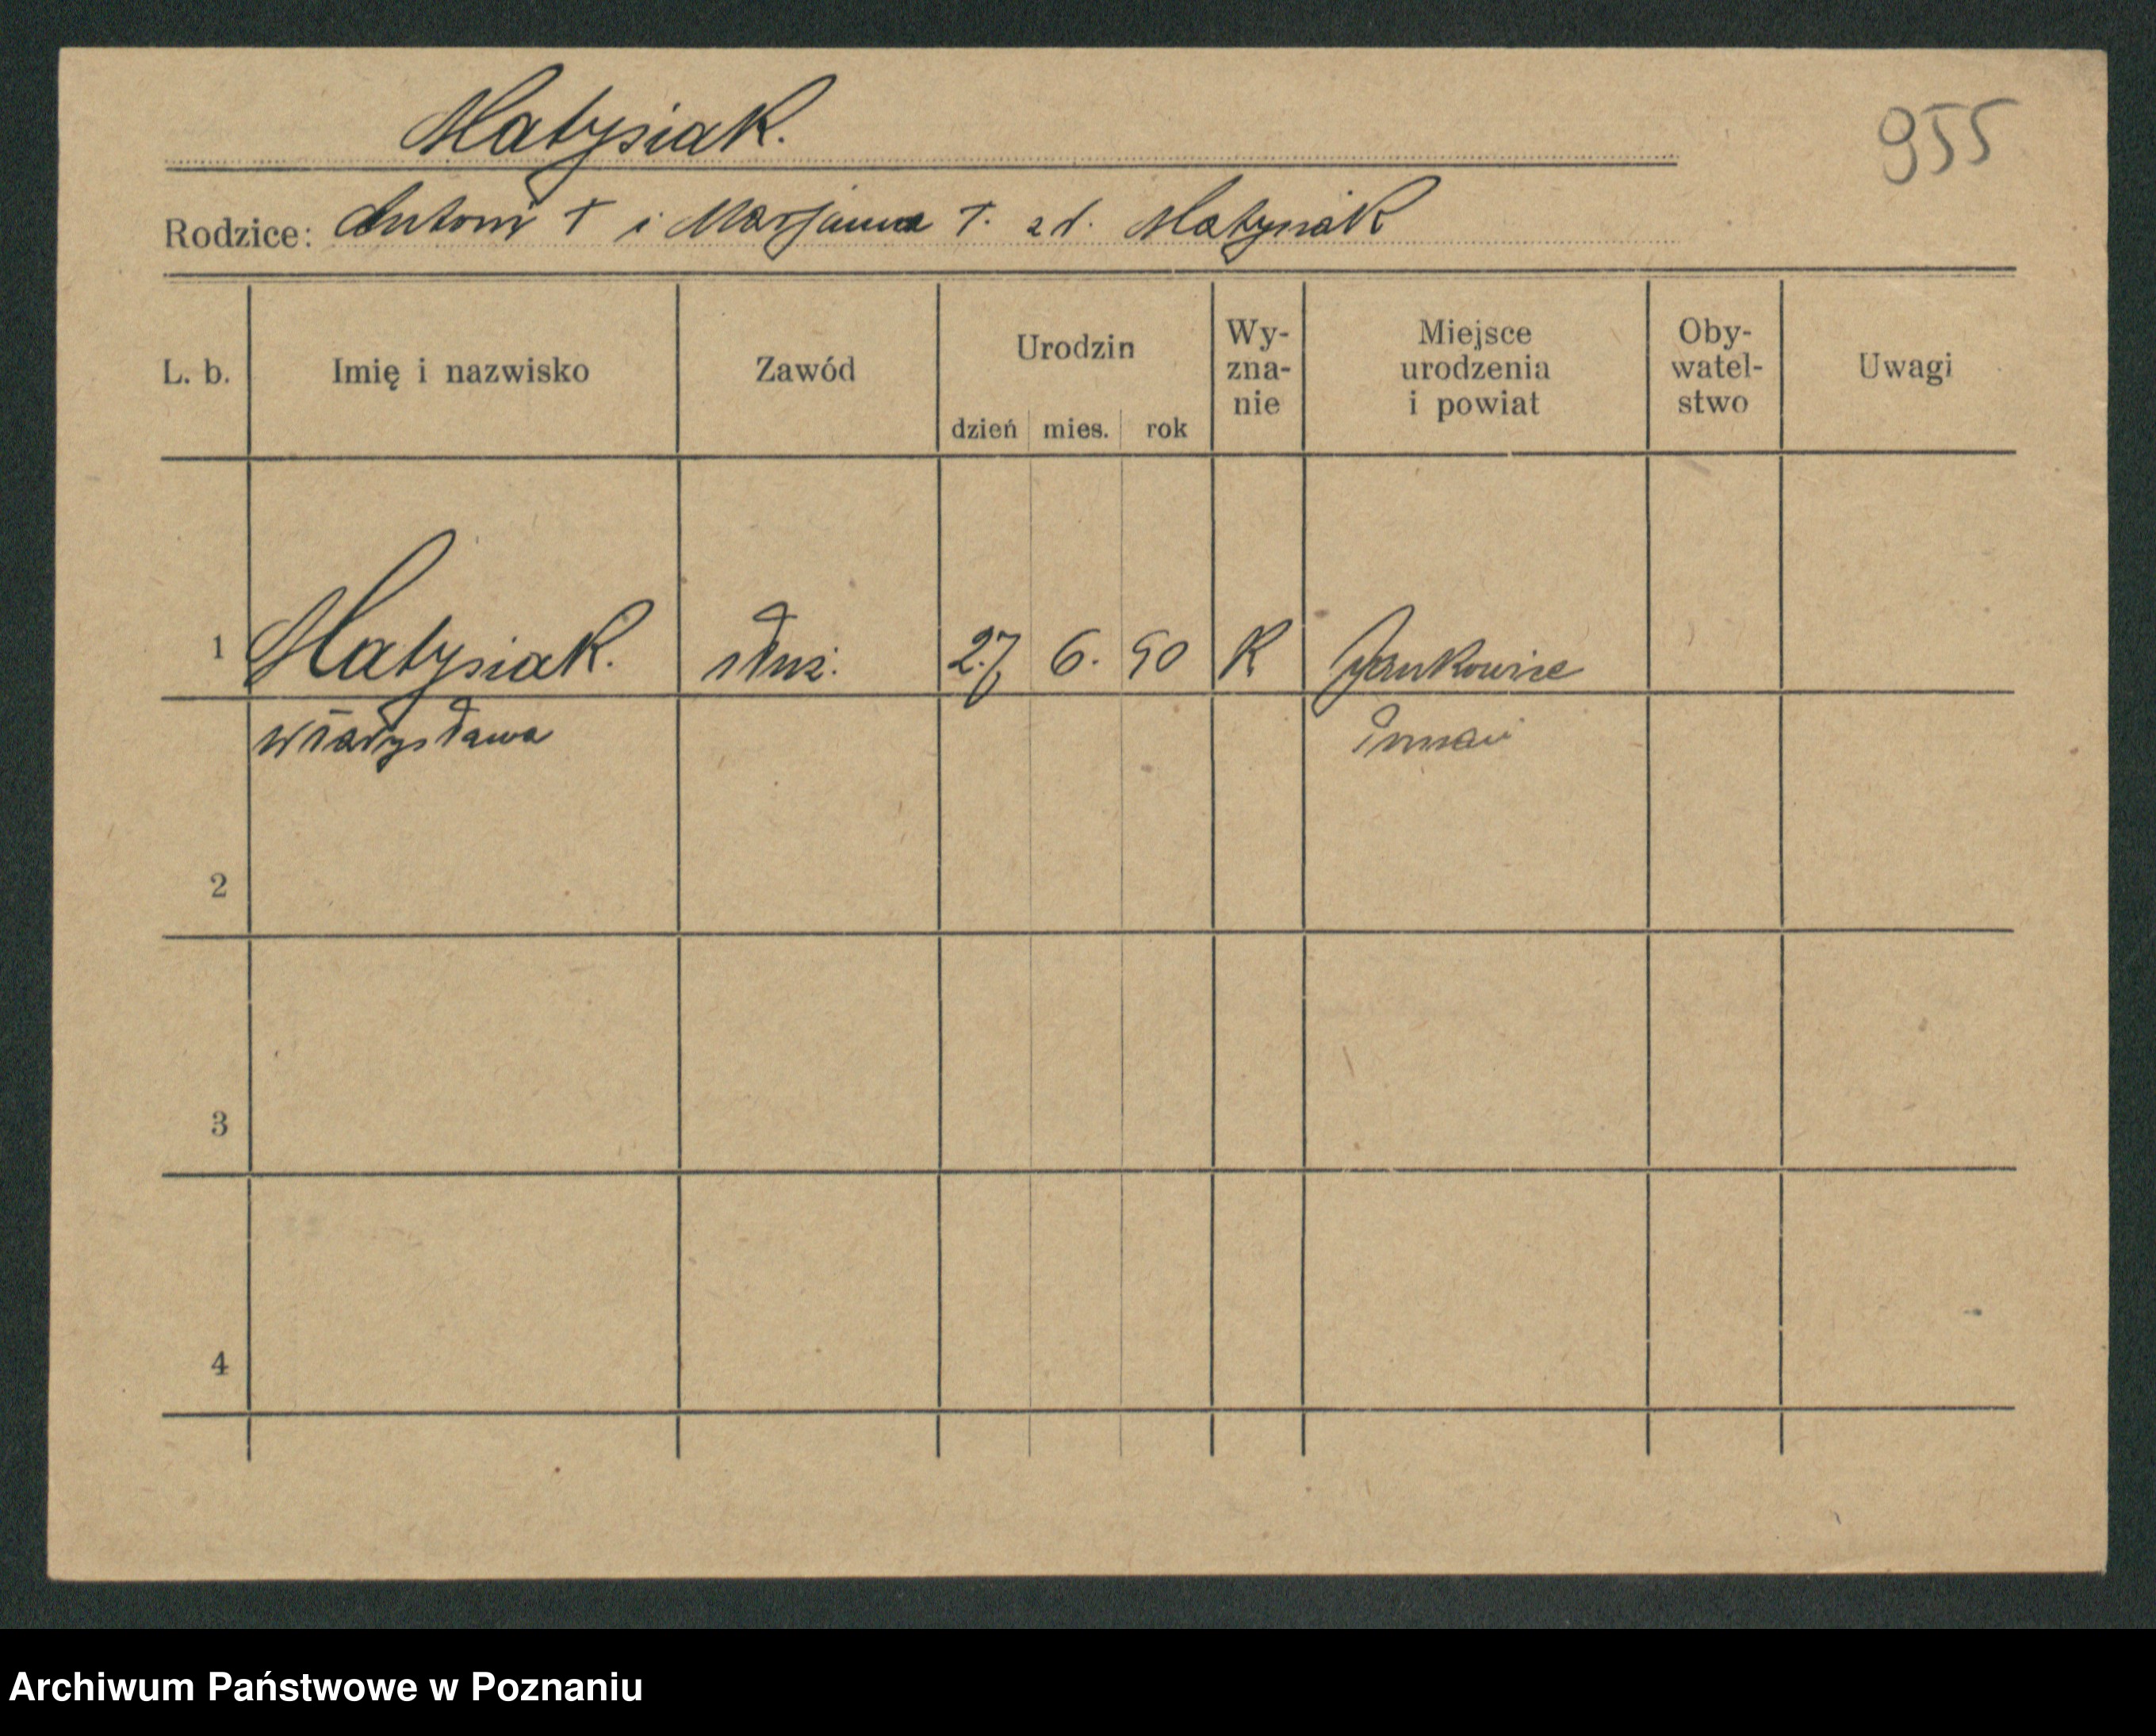 Matysiak.
955
Rodzice: Antoni † i Marjanna †. zd. Matysiak
L. b. Imię i nazwisko Zawód Urodzin dzień mies. rok Wy-zna-nie Miejsce urodzenia i powiat Oby-watel-stwo Uwagi
1 Matysiak. służ. 27 6. 90 K Jankowice
Władysława
2
3
4
Archiwum Państwowe w Poznaniu